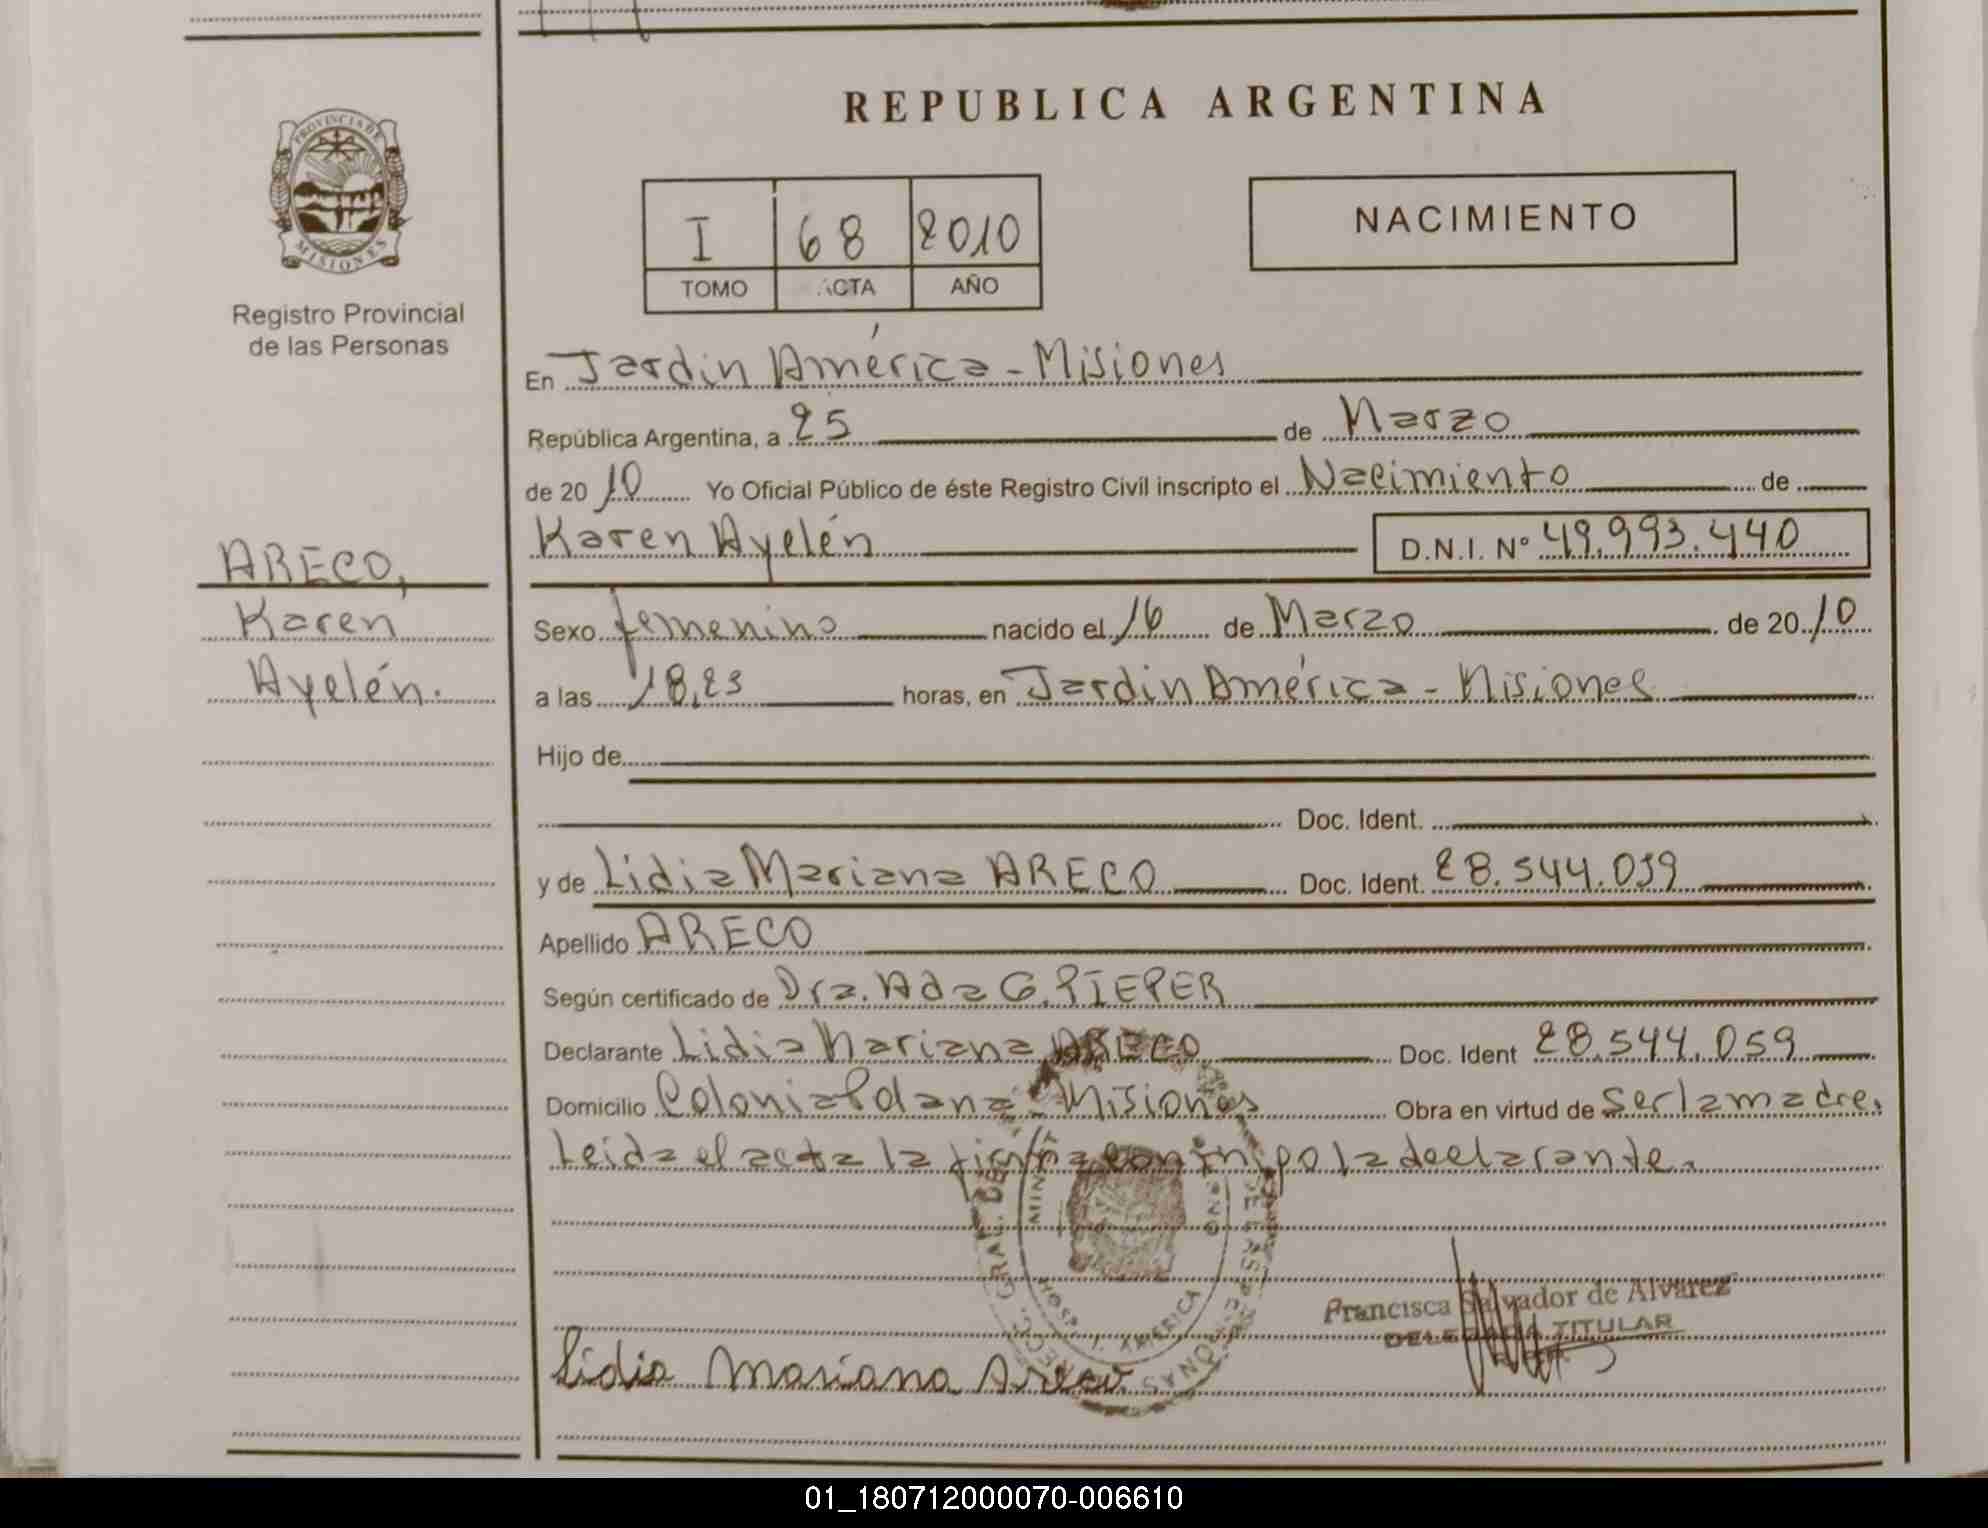 REPUBLICA ARGENTINA
PROVINCIA DE
MISIONES
Registro Provincial
de las Personas
I 68 2010
TOMO ACTA AÑO
NACIMIENTO
En Jardín América - Misiones
República Argentina, a 25 de Marzo
de 20 10 Yo Oficial Público de éste Registro Civil inscripto el Nacimiento de
Karen Ayelén D.N.I. Nº 49.993.440
ARECO,
Karen
Ayelén.
Sexo femenino nacido el 16 de Marzo de 20 10
a las 18,23 horas, en Jardín América - Misiones
Hijo de
Doc. Ident.
y de Lidia Mariana ARECO Doc. Ident. 28.544.059
Apellido ARECO
Según certificado de Dra. Ada G. PIEPER
Declarante Lidia Mariana ARECO Doc. Ident 28.544.059
Domicilio Colonia Polana - Misiones Obra en virtud de ser la madre.
Leída el acta la firma conmigo la declarante.
Francisca Salvador de Alvarez
DELEGADA TITULAR
Lidia Mariana Areco
01_180712000070-006610